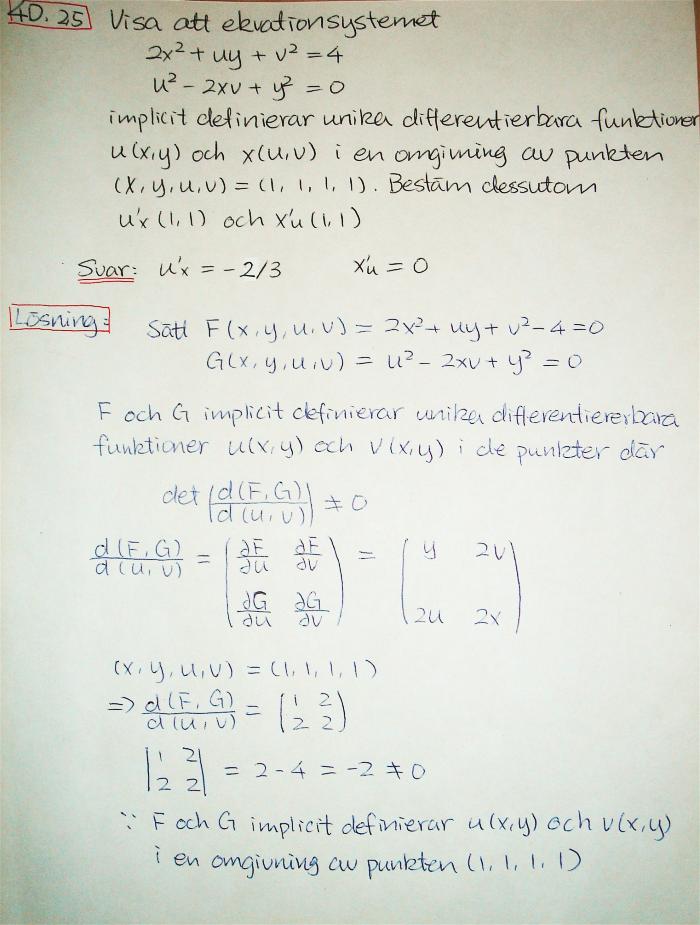 4D.25 Visa att ekvationsystemet
2x² + uy + v² = 4
u² - 2xv + y² = 0
implicit definierar unika differentierbara funktioner
u(x,y) och x(u,v) i en omgivning av punkten
(x, y, u, v) = (1, 1, 1, 1). Bestäm dessutom
u'x (1,1) och x'u (1,1)
Svar: u'x = -2/3 x'u = 0
Lösning: Sätt F(x, y, u, v) = 2x² + uy + v² - 4 = 0
G(x, y, u, v) = u² - 2xv + y² = 0
F och G implicit definierar unika differentiererbara
funktioner u(x,y) och v(x,y) i de punkter där
det |d(F,G)/d(u,v)| ≠ 0
d(F,G)/d(u,v) = (∂F/∂u ∂F/∂v) = (y 2v)
(∂G/∂u ∂G/∂v) (2u 2x)
(x, y, u, v) = (1, 1, 1, 1)
=> d(F,G)/d(u,v) = (1 2)
(2 2)
|1 2|
|2 2| = 2 - 4 = -2 ≠ 0
∵ F och G implicit definierar u(x,y) och v(x,y)
i en omgivning av punkten (1, 1, 1, 1)